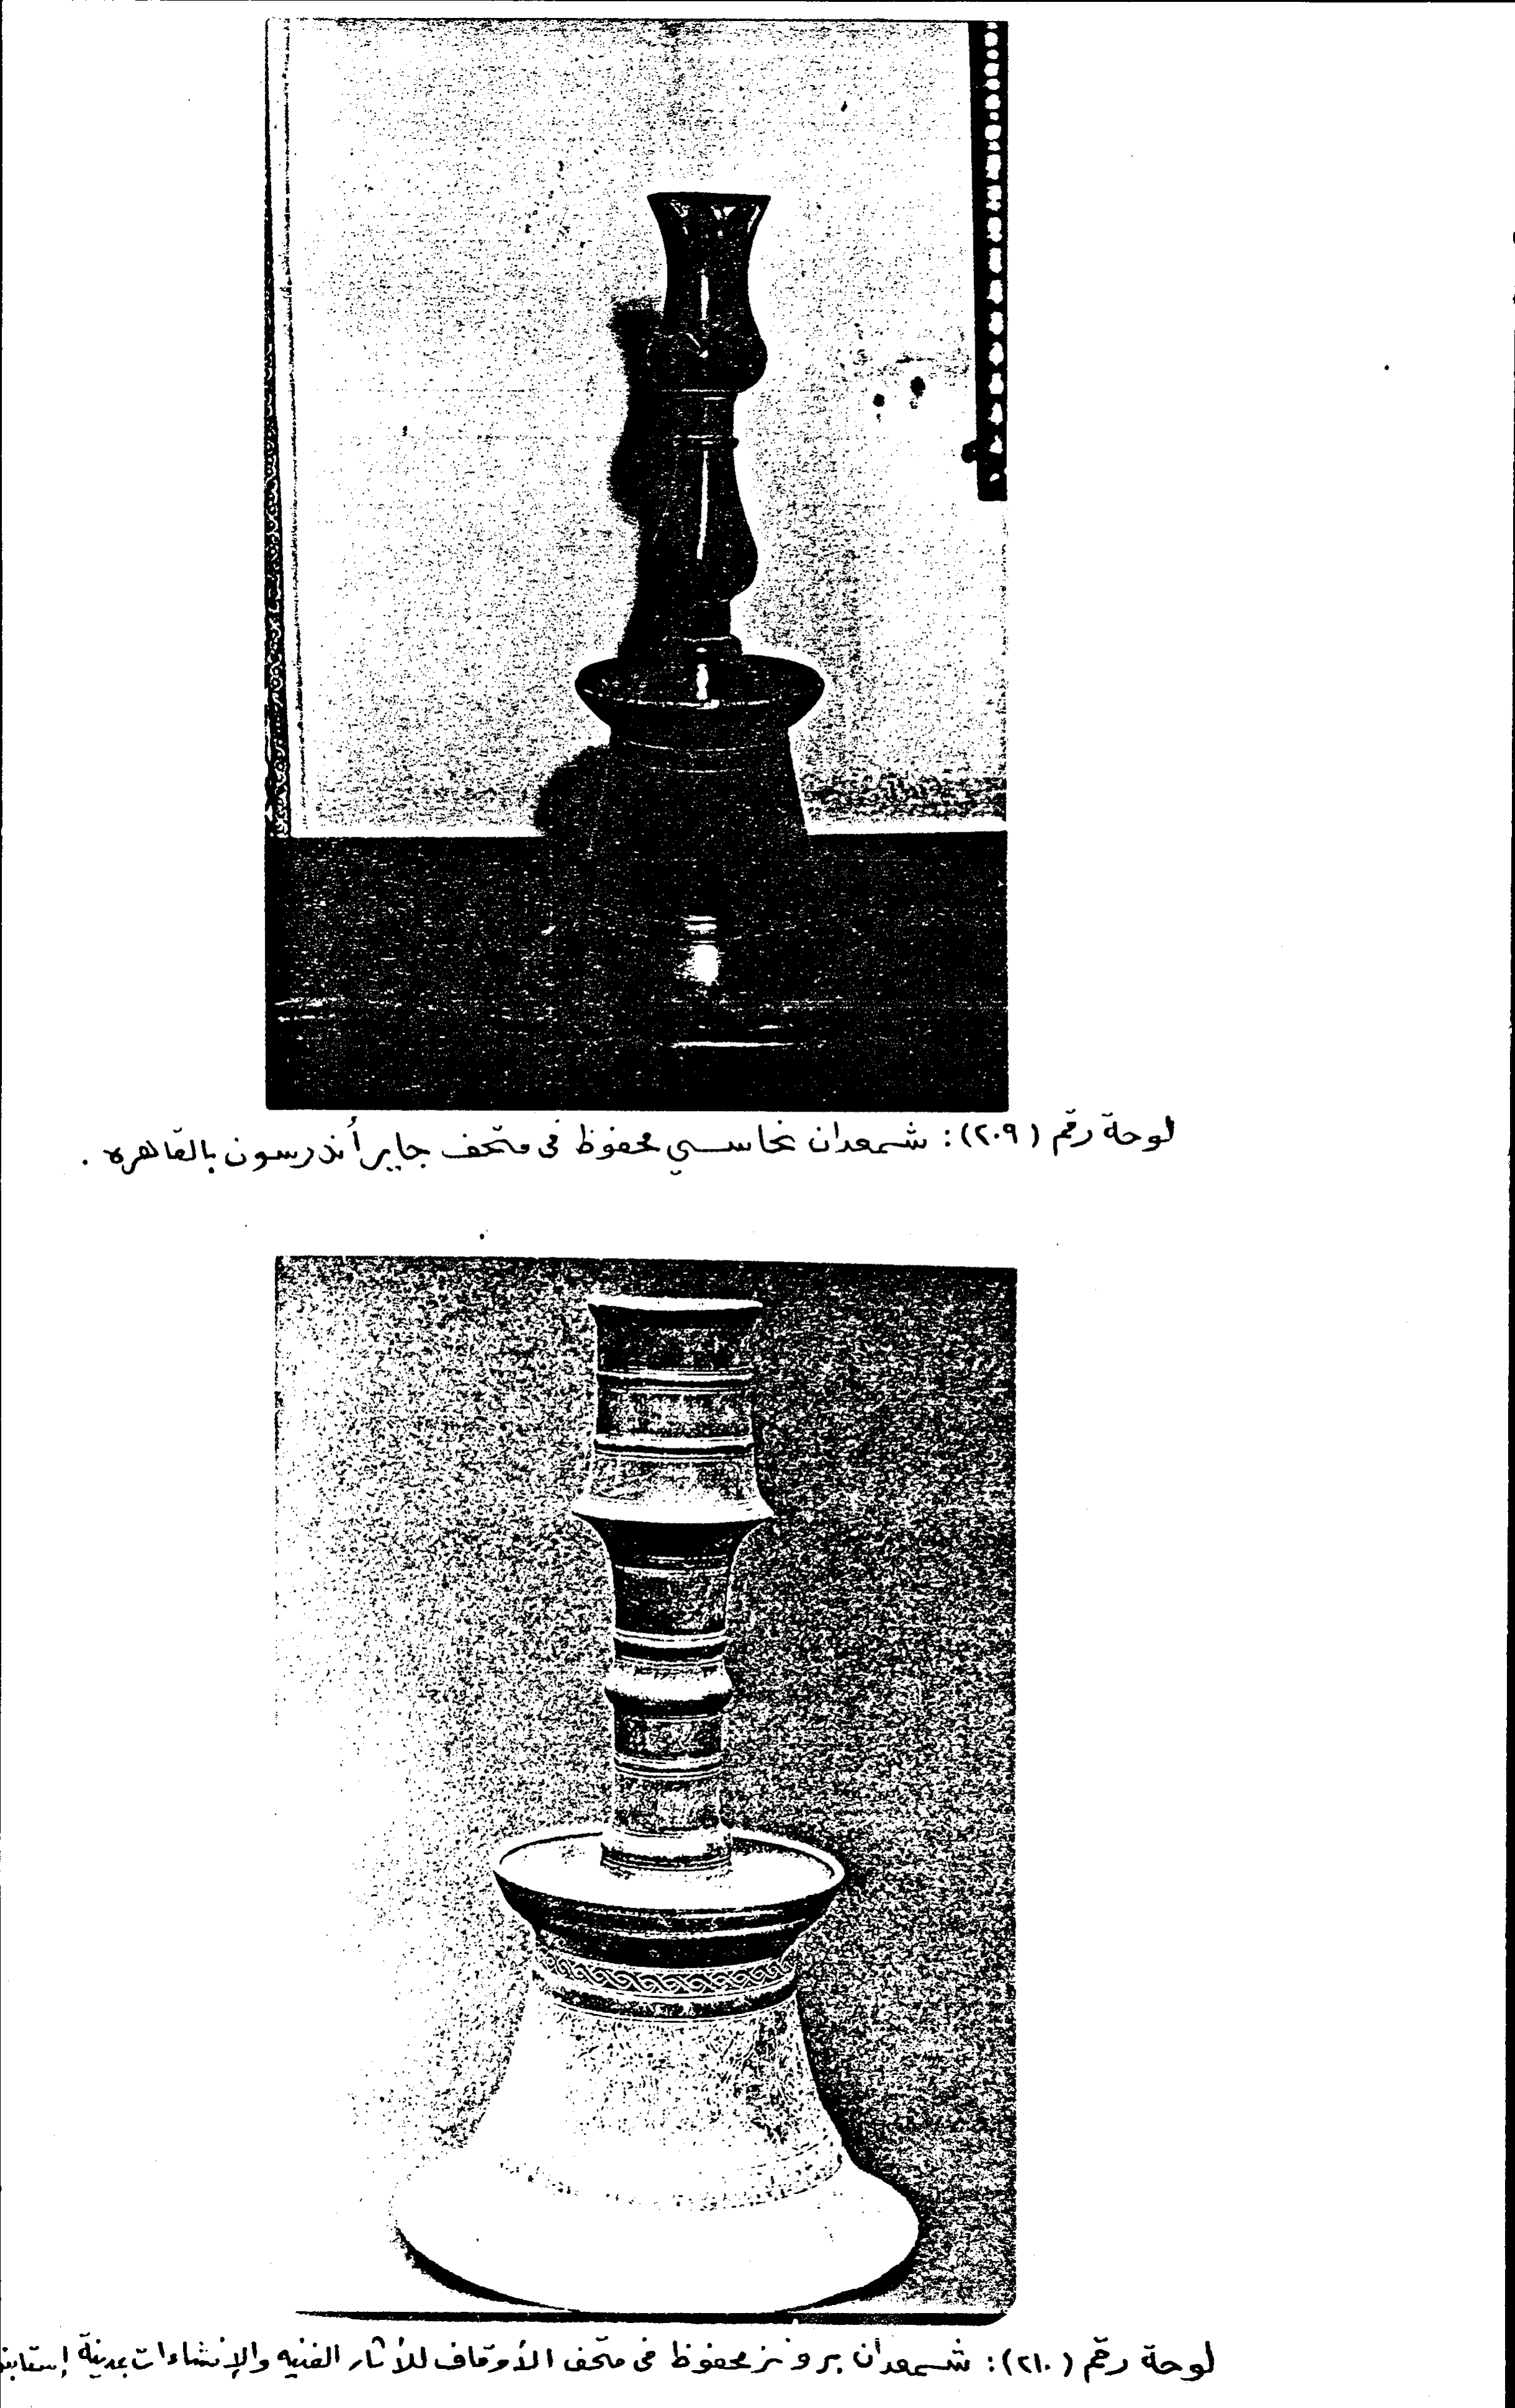 لوحة رقم (٢٠٩): شمعدان نحاسي محفوظ فى متحف جاير أندرسون بالقاهره .
لوحة رقم (٢١٠): شمعدان برونز محفوظ فى متحف الأوقاف للأثار الفنيه والإنشاءات بمدينة